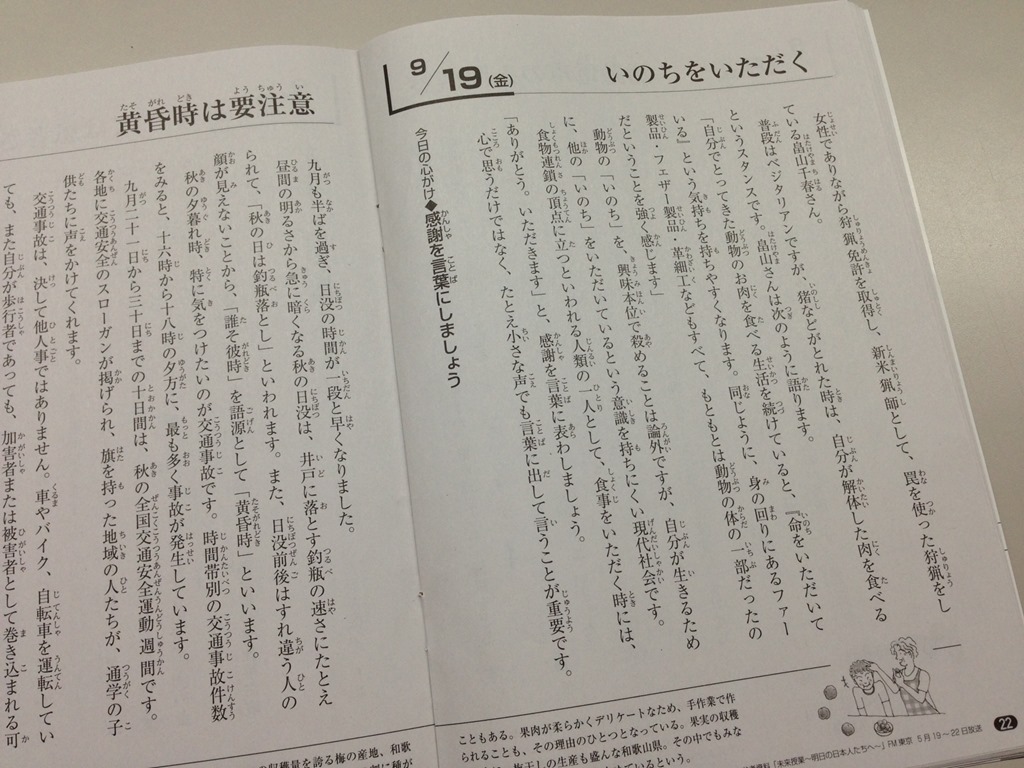 いのちをいただく
9/19(金)
女性でありながら狩猟免許を取得し、新米猟師として、罠を使った狩猟をし
ている畠山千春さん。
普段はベジタリアンですが、猪などがとれた時は、自分が解体した肉を食べる
というスタンスです。畠山さんは次のように語ります。
「自分でとってきた動物のお肉を食べる生活を続けていると、『命をいただいて
いる』という気持ちを持ちやすくなります。同じように、身の回りにあるファー
製品・フェザー製品・革細工などもすべて、もともとは動物の体の一部だったの
だということを強く感じます」
動物の「いのち」を、興味本位で殺めることは論外ですが、自分が生きるため
に、他の「いのち」をいただいているという意識を持ちにくい現代社会です。
食物連鎖の頂点に立つといわれる人類の一人として、食事をいただく時には、
「ありがとう。いただきます」と、感謝を言葉に表わしましょう。
心で思うだけではなく、たとえ小さな声でも言葉に出して言うことが重要です。
今日の心がけ◆感謝を言葉にしましょう
22
「未来授業〜明日の日本人たちへ〜」FM東京 5月19〜22日放送
こともある。果肉が柔らかくデリケートなため、手作業で作
られることも、その理由のひとつとなっている。果実の収穫
梅干しの生産も盛んな和歌山県。その中でもみな
ているという。
黄昏時は要注意
九月も半ばを過ぎ、日没の時間が一段と早くなりました。
昼間の明るさから急に暗くなる秋の日没は、井戸に落とす釣瓶の速さにたとえ
られて、「秋の日は釣瓶落とし」といわれます。また、日没前後はすれ違う人の
顔が見えないことから、「誰そ彼時」を語源として「黄昏時」といいます。
秋の夕暮れ時、特に気をつけたいのが交通事故です。時間帯別の交通事故件数
をみると、十六時から十八時の夕方に、最も多く事故が発生しています。
九月二十一日から三十日までの十日間は、秋の全国交通安全運動週間です。
各地に交通安全のスローガンが掲げられ、旗を持った地域の人たちが、通学の子
供たちに声をかけてくれます。
交通事故は、決して他人事ではありません。車やバイク、自転車を運転してい
ても、また自分が歩行者であっても、加害者または被害者として巻き込まれる可
収穫量を誇る梅の産地、和歌